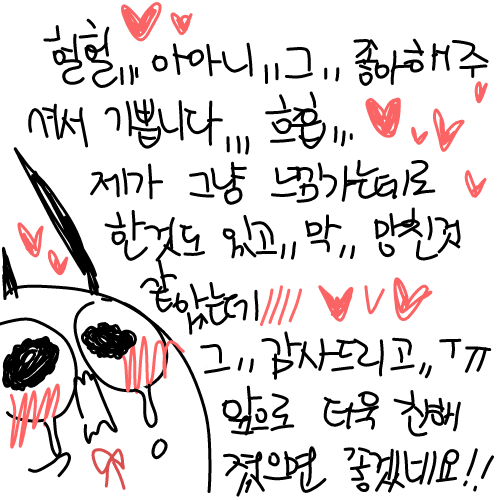 헐헐,,, 아아니,, 그,, 좋아해주
셔서 기쁩니다,,, 흐흡,,,
제가 그냥 느낌가는데로
한것도 있고,, 막,, 망친것
같았는데
그,, 감사드리고,, ㅜㅠ
앞으로 더욱 친해
졌으면 좋겠네요!!